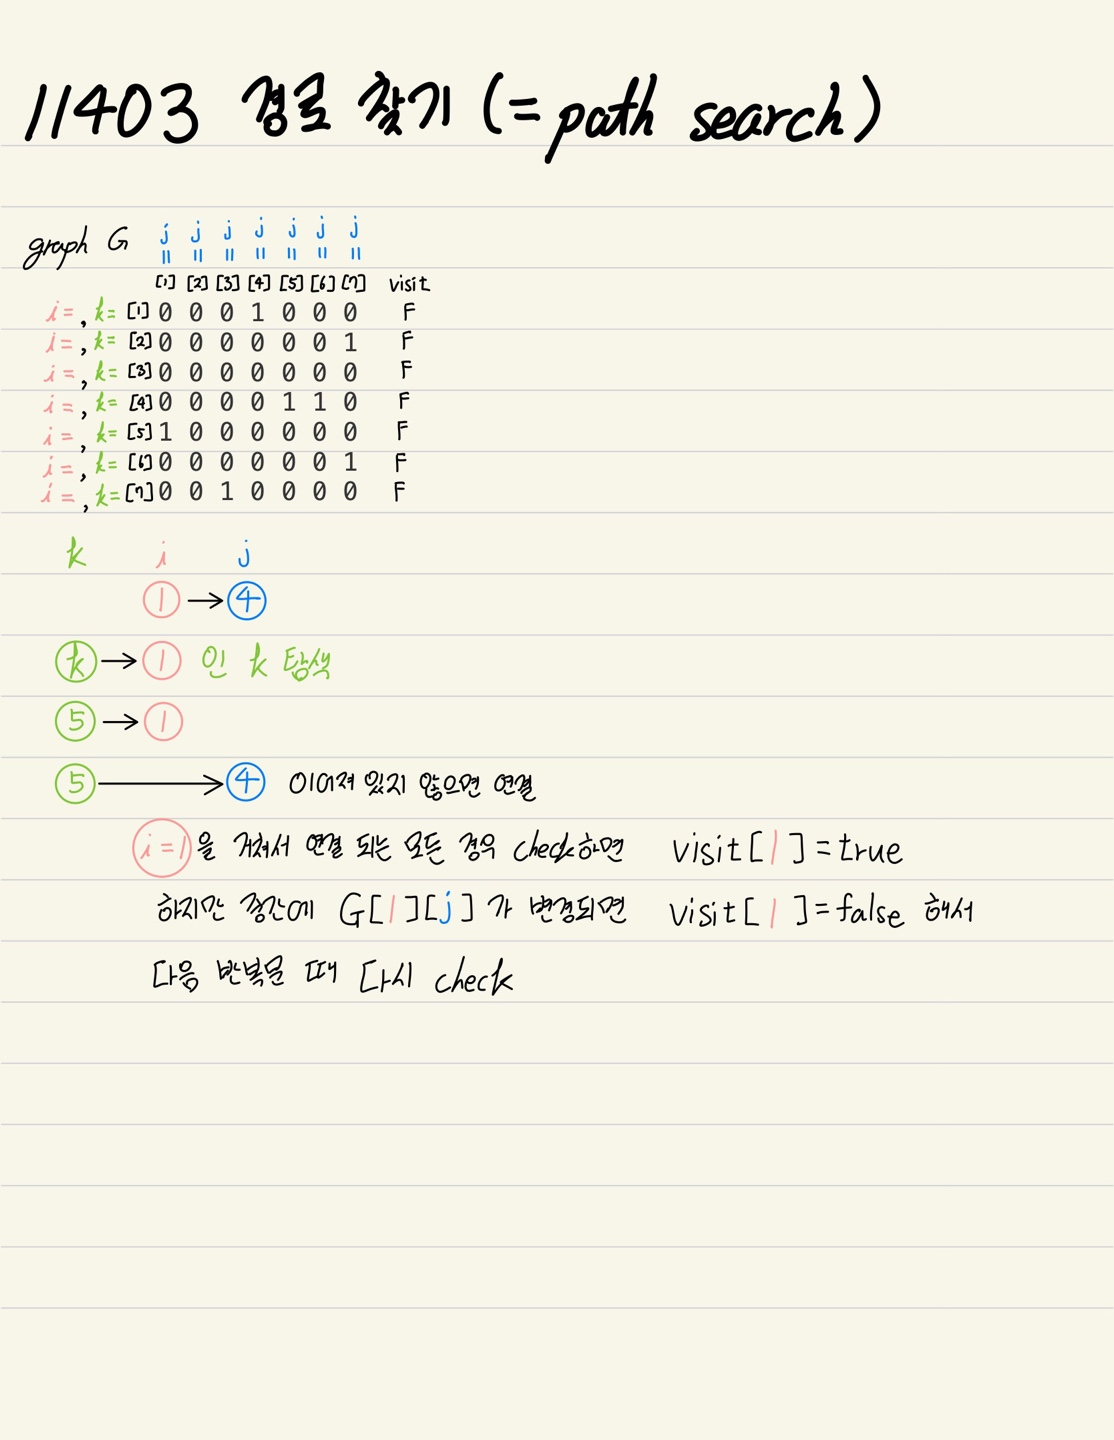 11403 경로 찾기 (= path search)
graph G j j j j j j j
= = = = = = =
[1] [2] [3] [4] [5] [6] [7] visit
i= , k= [1] 0 0 0 1 0 0 0 F
i= , k= [2] 0 0 0 0 0 0 1 F
i= , k= [3] 0 0 0 0 0 0 0 F
i= , k= [4] 0 0 0 0 1 1 0 F
i= , k= [5] 1 0 0 0 0 0 0 F
i= , k= [6] 0 0 0 0 0 0 1 F
i= , k= [7] 0 0 1 0 0 0 0 F
k i j
1 → 4
k → 1 인 k 탐색
5 → 1
5 → 4 이어져 있지 않으면 연결
i=1 을 거쳐서 연결 되는 모든 경우 check하면 visit[1]=true
하지만 중간에 G[1][j] 가 변경되면 visit[1]=false 해서
다음 반복문 때 다시 check